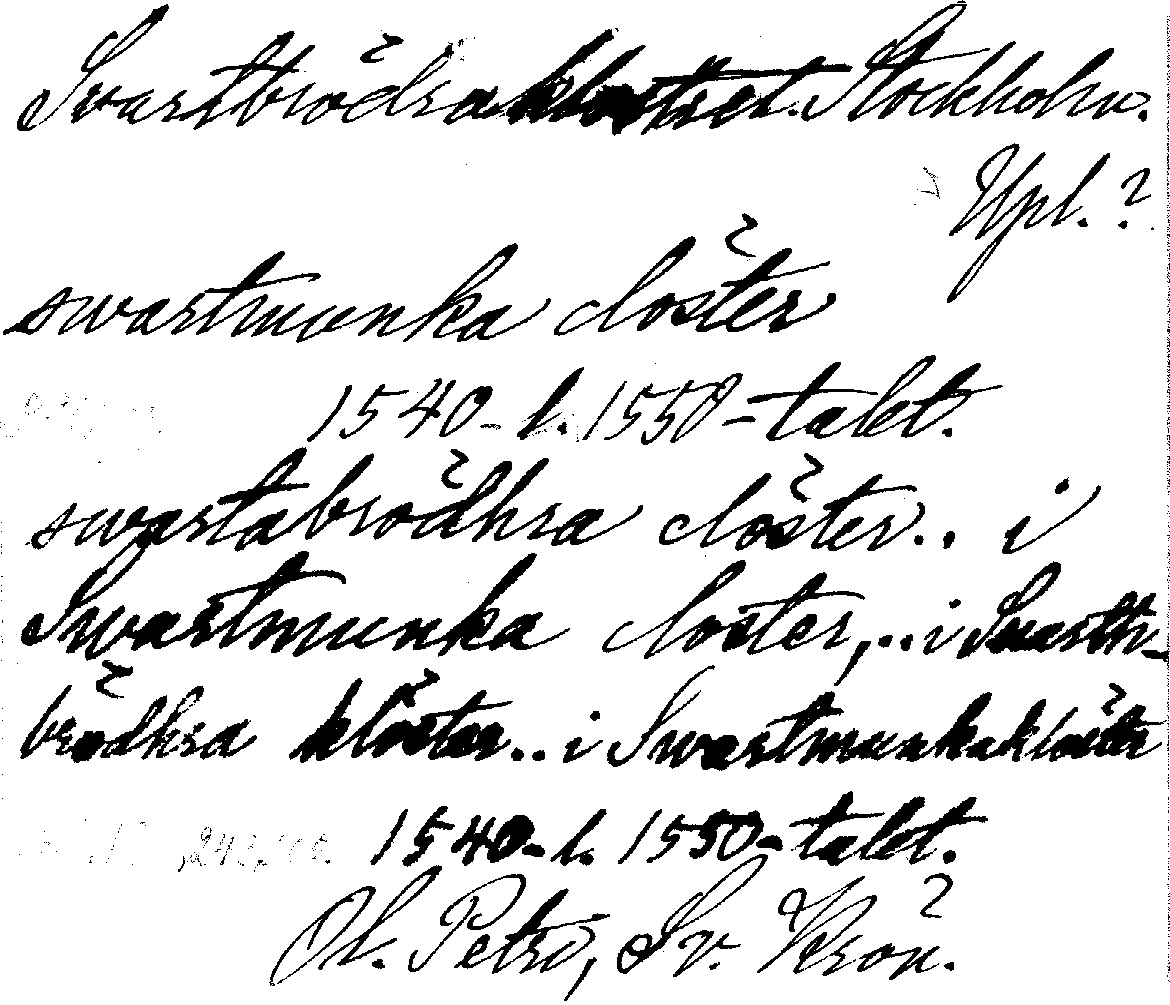 Svartbrödraklostret. Stockholm.
Upl.?
swartmunka clöster
1540- l. 1550-talet.
swartabrödhra clöster.. i
Swartmunka closter,.. i Swartth-
brödhra klöster.. i Swartmunkaklöster
1540- l. 1550-talet.
Ol. Petri, Sv. Krön.